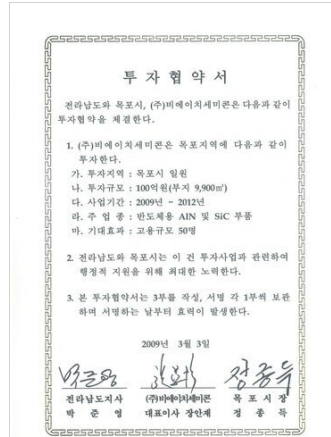 투 자 협 약 서
전라남도와 목포시, (주)비에이치세미콘은 다음과 같이
투자협약을 체결한다.
1. (주)비에이치세미콘은 목포지역에 다음과 같이
투자한다.
가. 투자지역 : 목포시 일원
나. 투자규모 : 100억원(부지 9,900㎡)
다. 사업기간 : 2009년 ~ 2012년
라. 주 업 종 : 반도체용 AIN 및 SiC 부품
마. 기대효과 : 고용규모 50명
2. 전라남도와 목포시는 이 건 투자사업과 관련하여
행정적 지원을 위해 최대한 노력한다.
3. 본 투자협약서는 3부를 작성, 서명 각 1부씩 보관
하며 서명하는 날부터 효력이 발생한다.
2009년 3월 3일
전라남도지사 (주)비에이치세미콘 목 포 시 장
박 준 영 대표이사 장안재 정 종 득